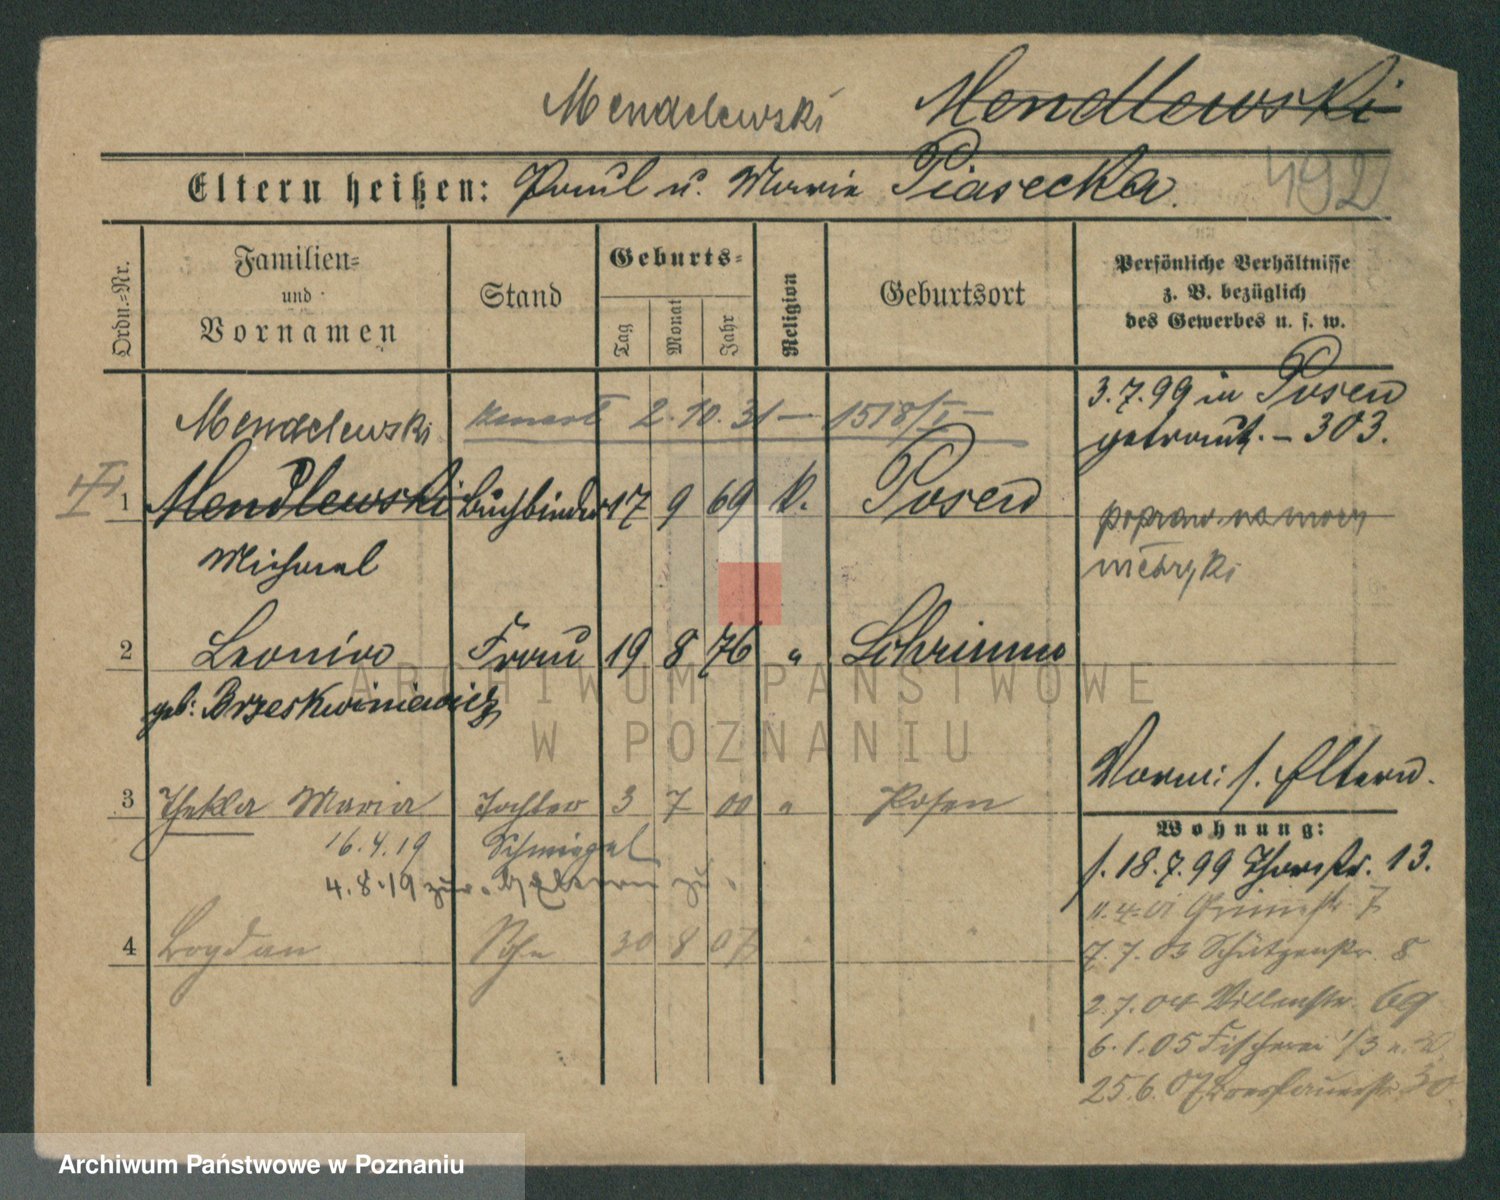 Mendelewski Mendlewski
Eltern heißen: Paul u. Maria Piasecka. 492
Ordn.-Nr.
Familien- und Vornamen
Stand
Geburts-
Tag Monat Jahr
Religion
Geburtsort
Persönliche Verhältnisse
z. B. bezüglich
des Gewerbes u. s. w.
Mendelewski 2.10.31 — 1518/I —
3.7.99 in Posen
getraut. – 303.
1 Mendlewski Buchbinder 17 9 69 k. Posen
popraw. na mocy
metryki
Michael
2 Leonira Frau 19 8 76 " Schrimm
geb: Brzeskwiniewicz
Vorm: s. Eltern.
3 Thekla Maria Tochter 3 7 00 " Posen
Wohnung:
16.4.19 Schmiegel
4.8.19 zur. Eltern zu.
s. 18.7.99 Thorstr. 13.
11.4.01 7
4 Bogdan Sohn 30 8 07 "
7.7.03 Schützenstr. 8
2.7.04 69
6.1.05 Fischerei 1/3
25.6.07 Breslauerstr. 30.
ARCHIWUM PAŃSTWOWE
W POZNANIU
Archiwum Państwowe w Poznaniu